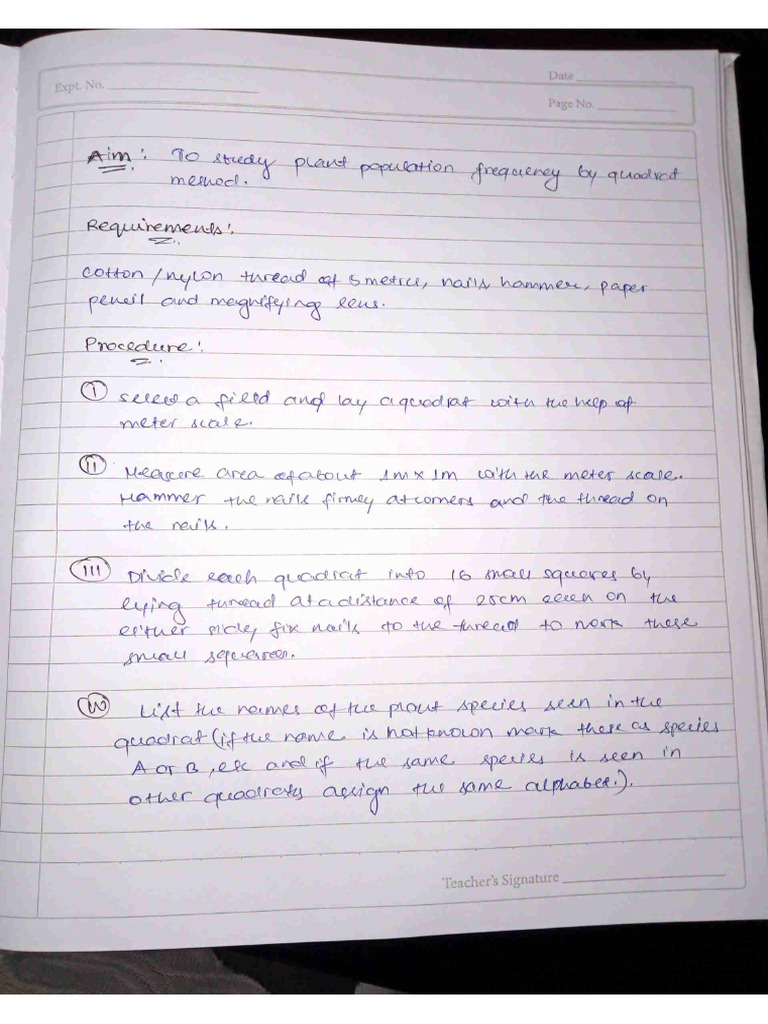 Expt. No.
Date
Page No.
Aim: To study plant population frequency by quadrat
method.
Requirements:
Cotton/nylon thread of 5 metres, nails hammer, paper
pencil and magnifying lens.
Procedure:
I Select a field and lay a quadrat with the help of
meter scale.
II Measure area of about 1m x 1m with the meter scale.
Hammer the nails firmly at corners and the thread on
the nails.
III Divide each quadrat into 16 small squares by
tying thread at a distance of 25cm each on the
either side, fix nails to the thread to mark these
small squares.
IV List the names of the plant species seen in the
quadrat (if the name is not known mark these as species
A or B, etc and if the same species is seen in
other quadrats assign the same alphabet.).
Teacher's Signature